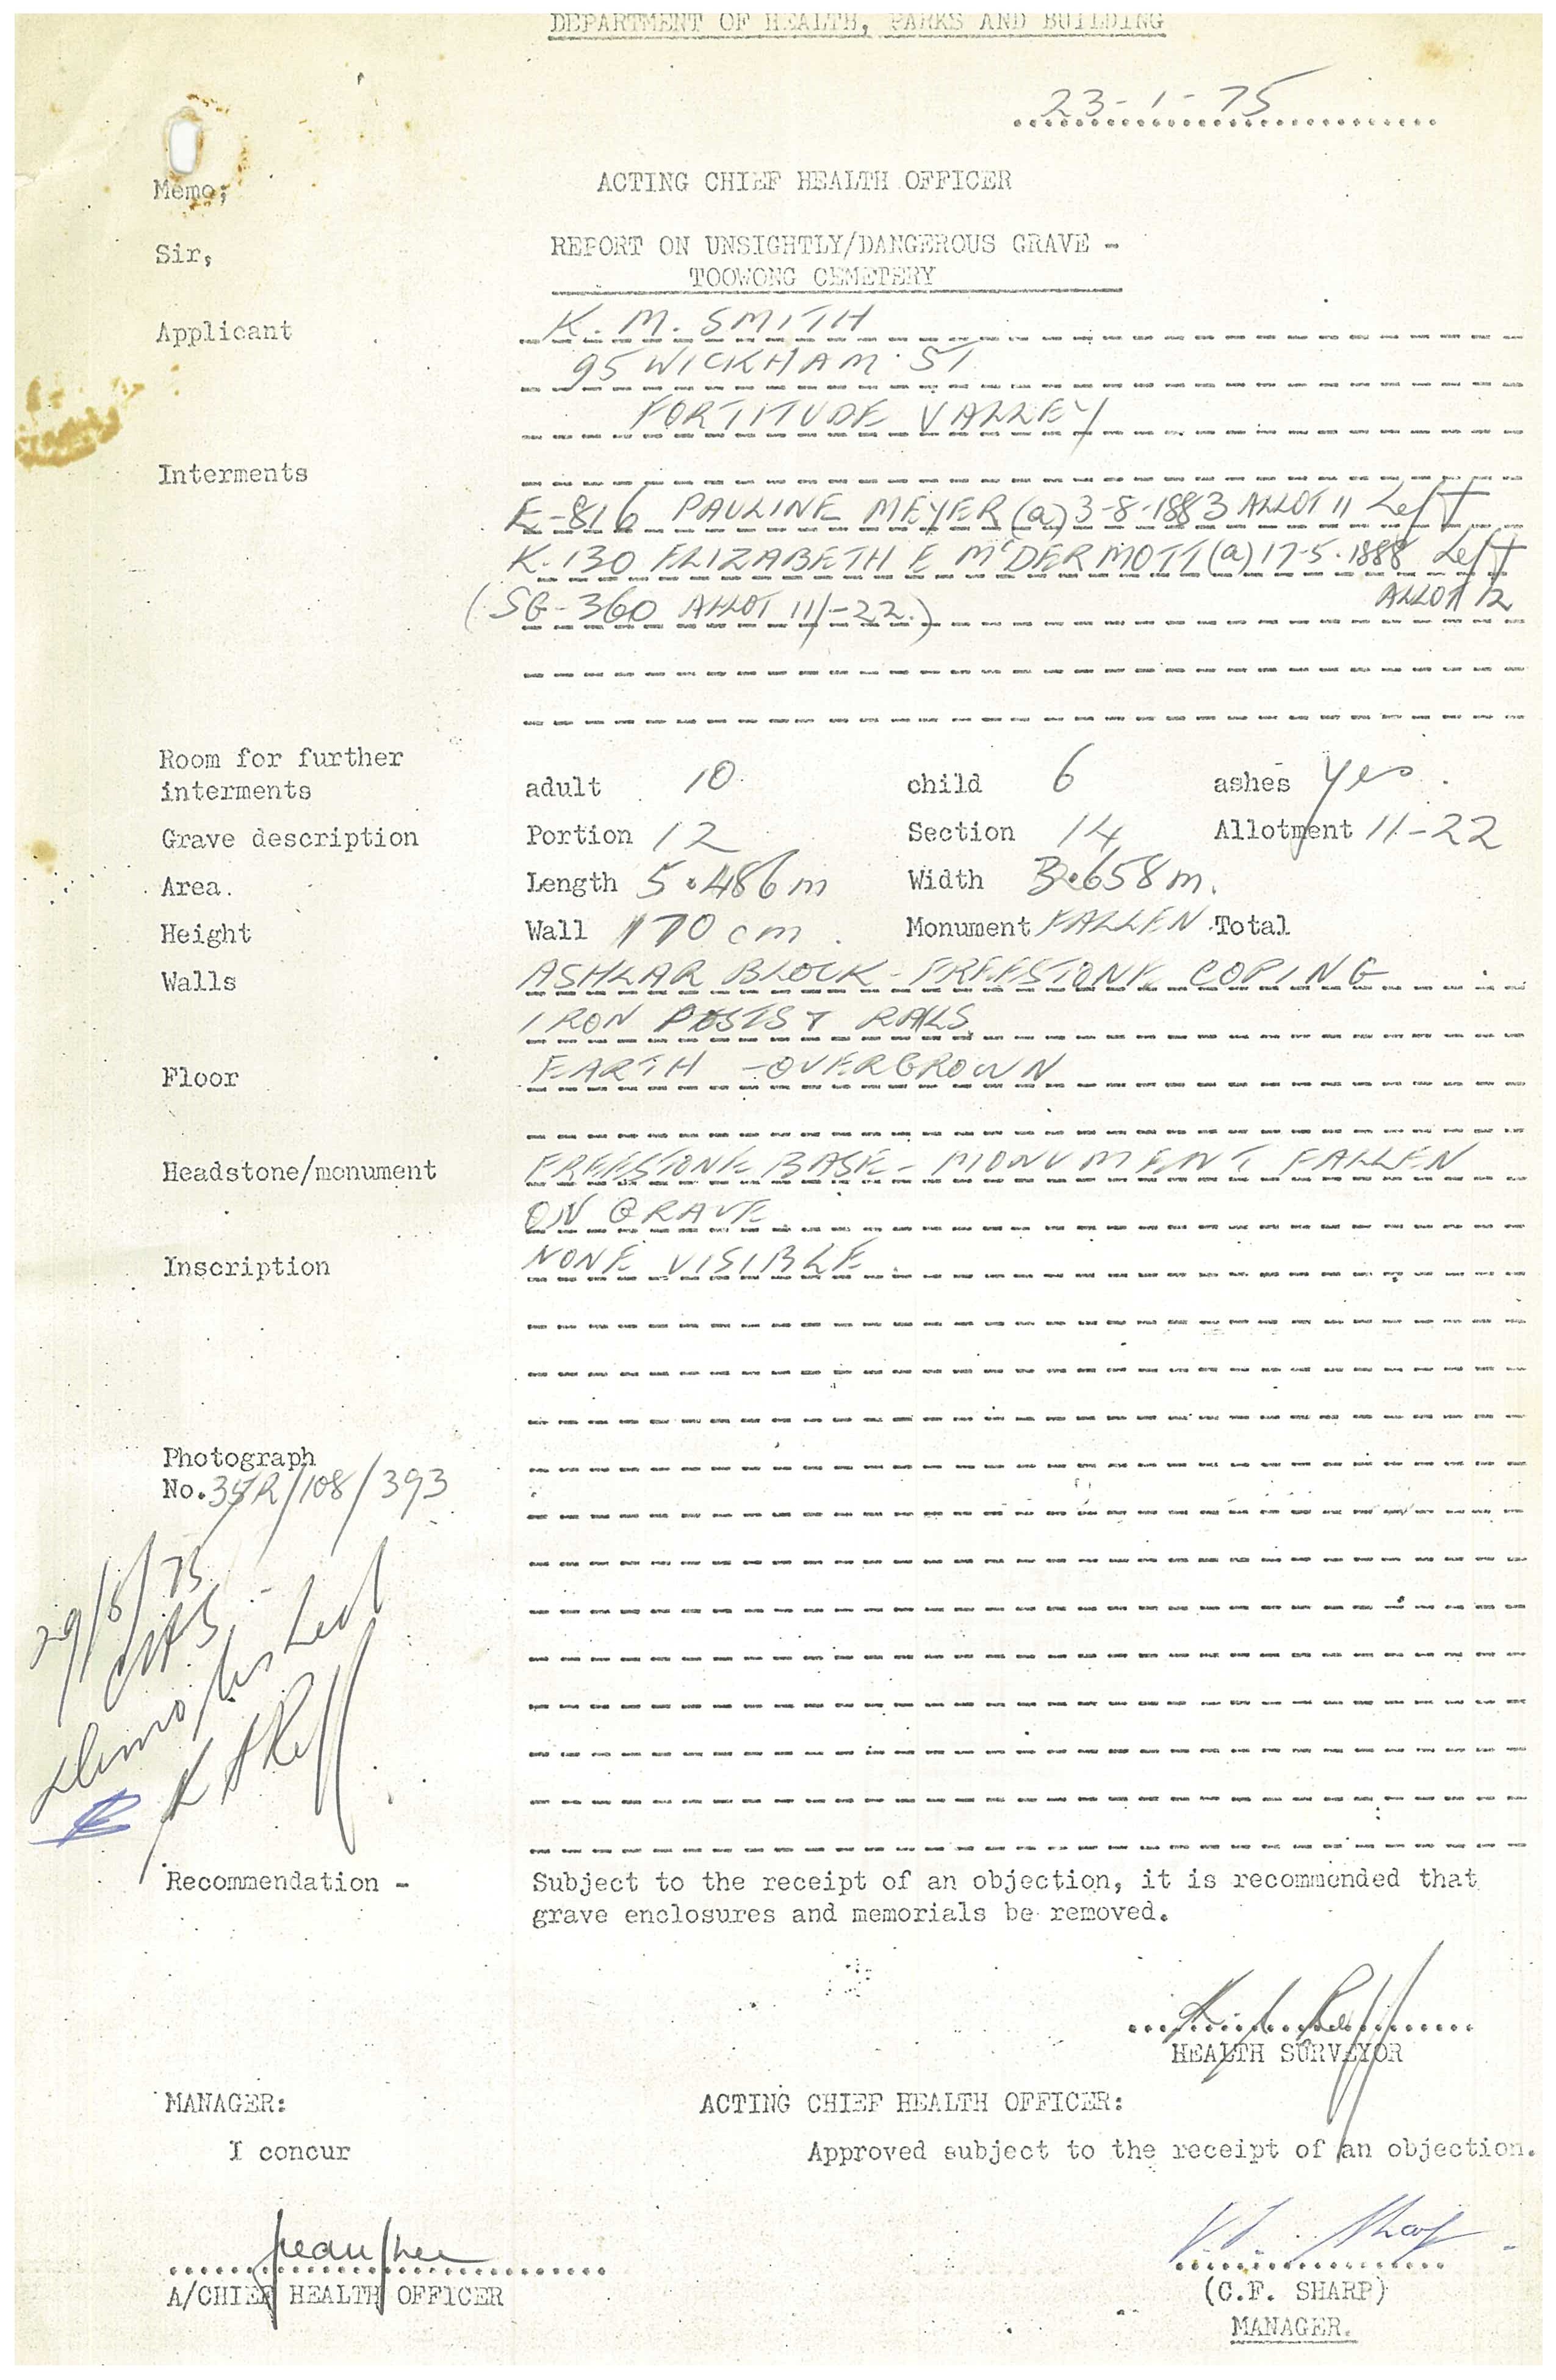 DEPARTMENT OF HEALTH, PARKS AND BUILDING
23-1-75
Memo; ACTING CHIEF HEALTH OFFICER
Sir, REPORT ON UNSIGHTLY/DANGEROUS GRAVE -
TOOWONG CEMETERY
Applicant K. M. SMITH
95 WICKHAM ST
FORTITUDE VALLEY
Interments
E-816 PAULINE MEYER (a) 3-8-1883 ALLOT 11 Left
K-130 ELIZABETH E McDERMOTT (a) 17-5-1888 Left
ALLOT 12
(SG-360 ALLOT 11/-22.)
Room for further
interments adult 10 child 6 ashes yes.
Grave description Portion 12 Section 14 Allotment 11-22
Area. Length 5.486m Width 3.658m.
Height Wall 170 cm. Monument FALLEN Total
Walls ASHLAR BLOCK - FREESTONE COPING
IRON POSTS & RAILS
Floor EARTH - OVERGROWN
Headstone/monument FREESTONE BASE - MONUMENT FALLEN
ON GRAVE
Inscription NONE VISIBLE.
Photograph
No. 35R/108/393
75
demolished
K A Reff
Recommendation - Subject to the receipt of an objection, it is recommended that
grave enclosures and memorials be removed.
HEALTH SURVEYOR
MANAGER: ACTING CHIEF HEALTH OFFICER:
I concur Approved subject to the receipt of an objection.
A/CHIEF HEALTH OFFICER
(C.F. SHARP)
MANAGER.